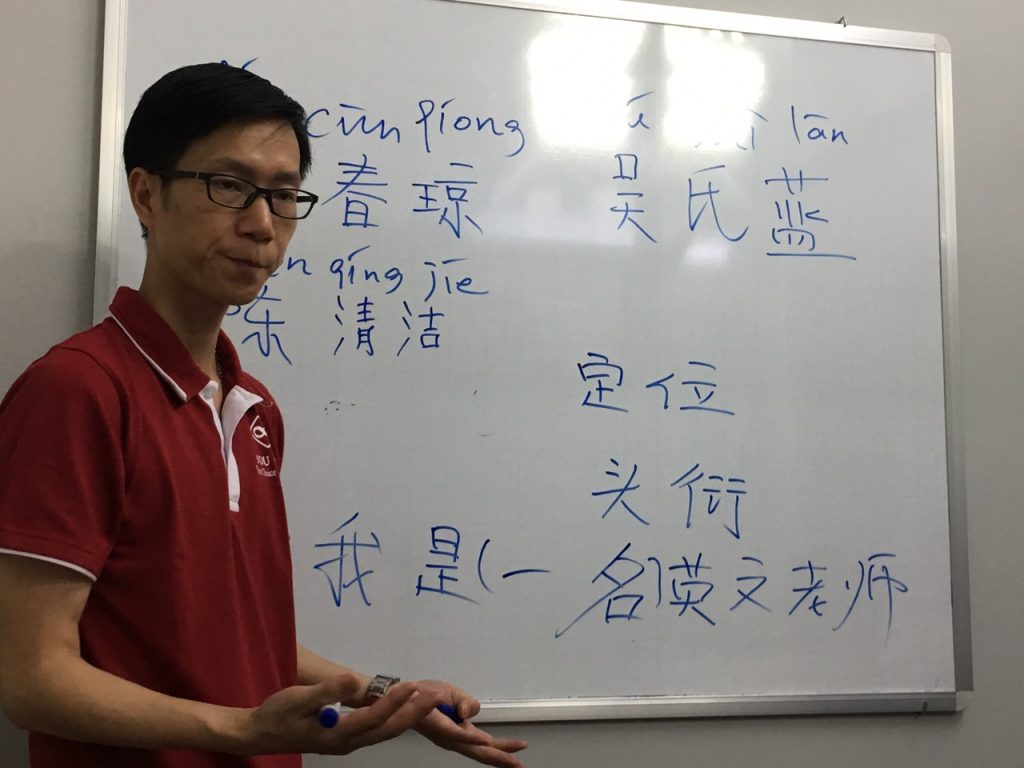 cūn qíong
lān
春琼
吴氏蓝
qíng jíe
清洁
定位
头衔
我是(一名)英文老师